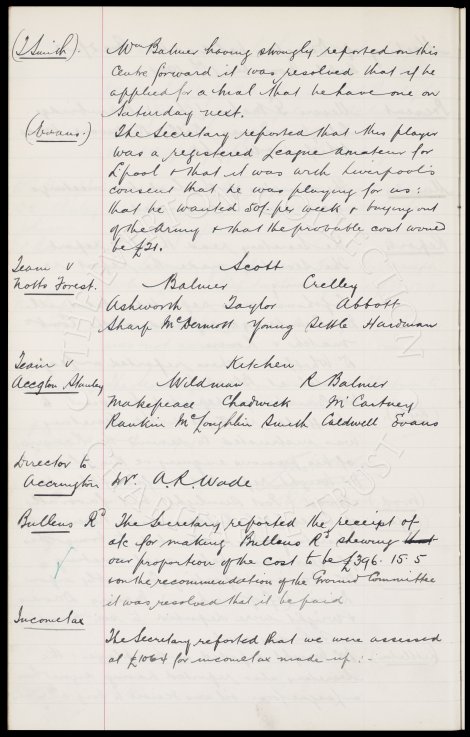 (J Smith). Wm Balmer having strongly reported on this
centre forward it was resolved that if he
applied for a trial that he have one on
Saturday next.
(Evans.) The Secretary reported that this player
was a registered League Amateur for
L'pool & that it was with Liverpool's
consent that he was playing for us:
that he wanted 50/- per week & buying out
of the Army & that the probable cost would
be £21.
Team v Scott
Notts Forest. Balmer Crelley
Ashworth Taylor Abbott
Sharp McDermott Young Settle Hardman
Team v Kitchen
Accgton Stanley Wildman R Balmer
Makepeace Chadwick McCartney
Rankin McLoughlin Smith Caldwell Evans
Director to
Accrington Dr. A.R. Wade
Bullens Rd The Secretary reported the receipt of
a/c for making Bullens Rd shewing that
our proportion of the cost to be £396.15.5
& on the recommendation of the Ground Committee
it was resolved that it be paid
Income tax
The Secretary reported that we were assessed
at £1064 for income tax made up:-